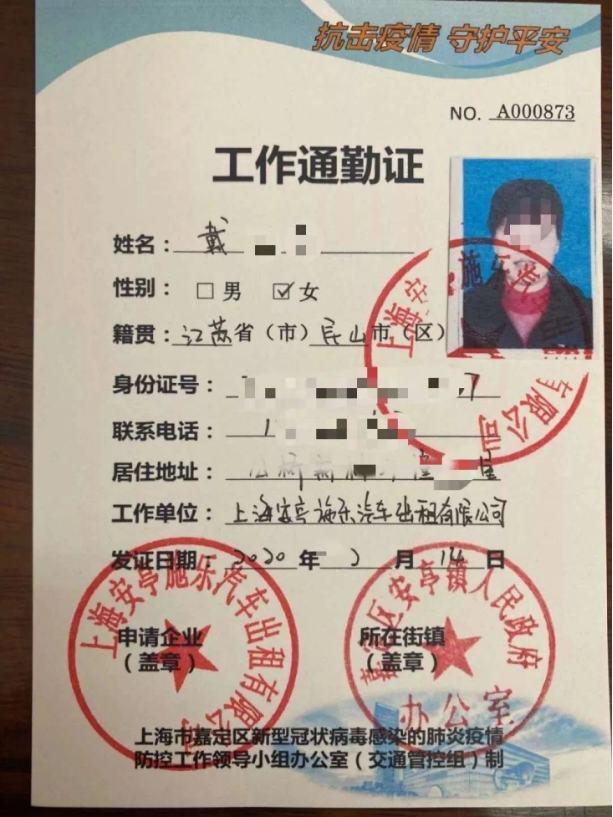 抗击疫情 守护平安
NO. A000873
工作通勤证
姓名：戴
性别：□男 ☑女
籍贯：江苏省（市）昆山市（区）
身份证号：7
联系电话：1
居住地址：室
工作单位：上海安亭施乐汽车出租有限公司
发证日期：2020年2月14日
上海安亭施乐汽车出租有限公司
上海安亭施乐汽车出租有限公司
申请企业
（盖章）
嘉定区安亭镇人民政府
办公室
所在街镇
（盖章）
上海市嘉定区新型冠状病毒感染的肺炎疫情
防控工作领导小组办公室（交通管控组）制